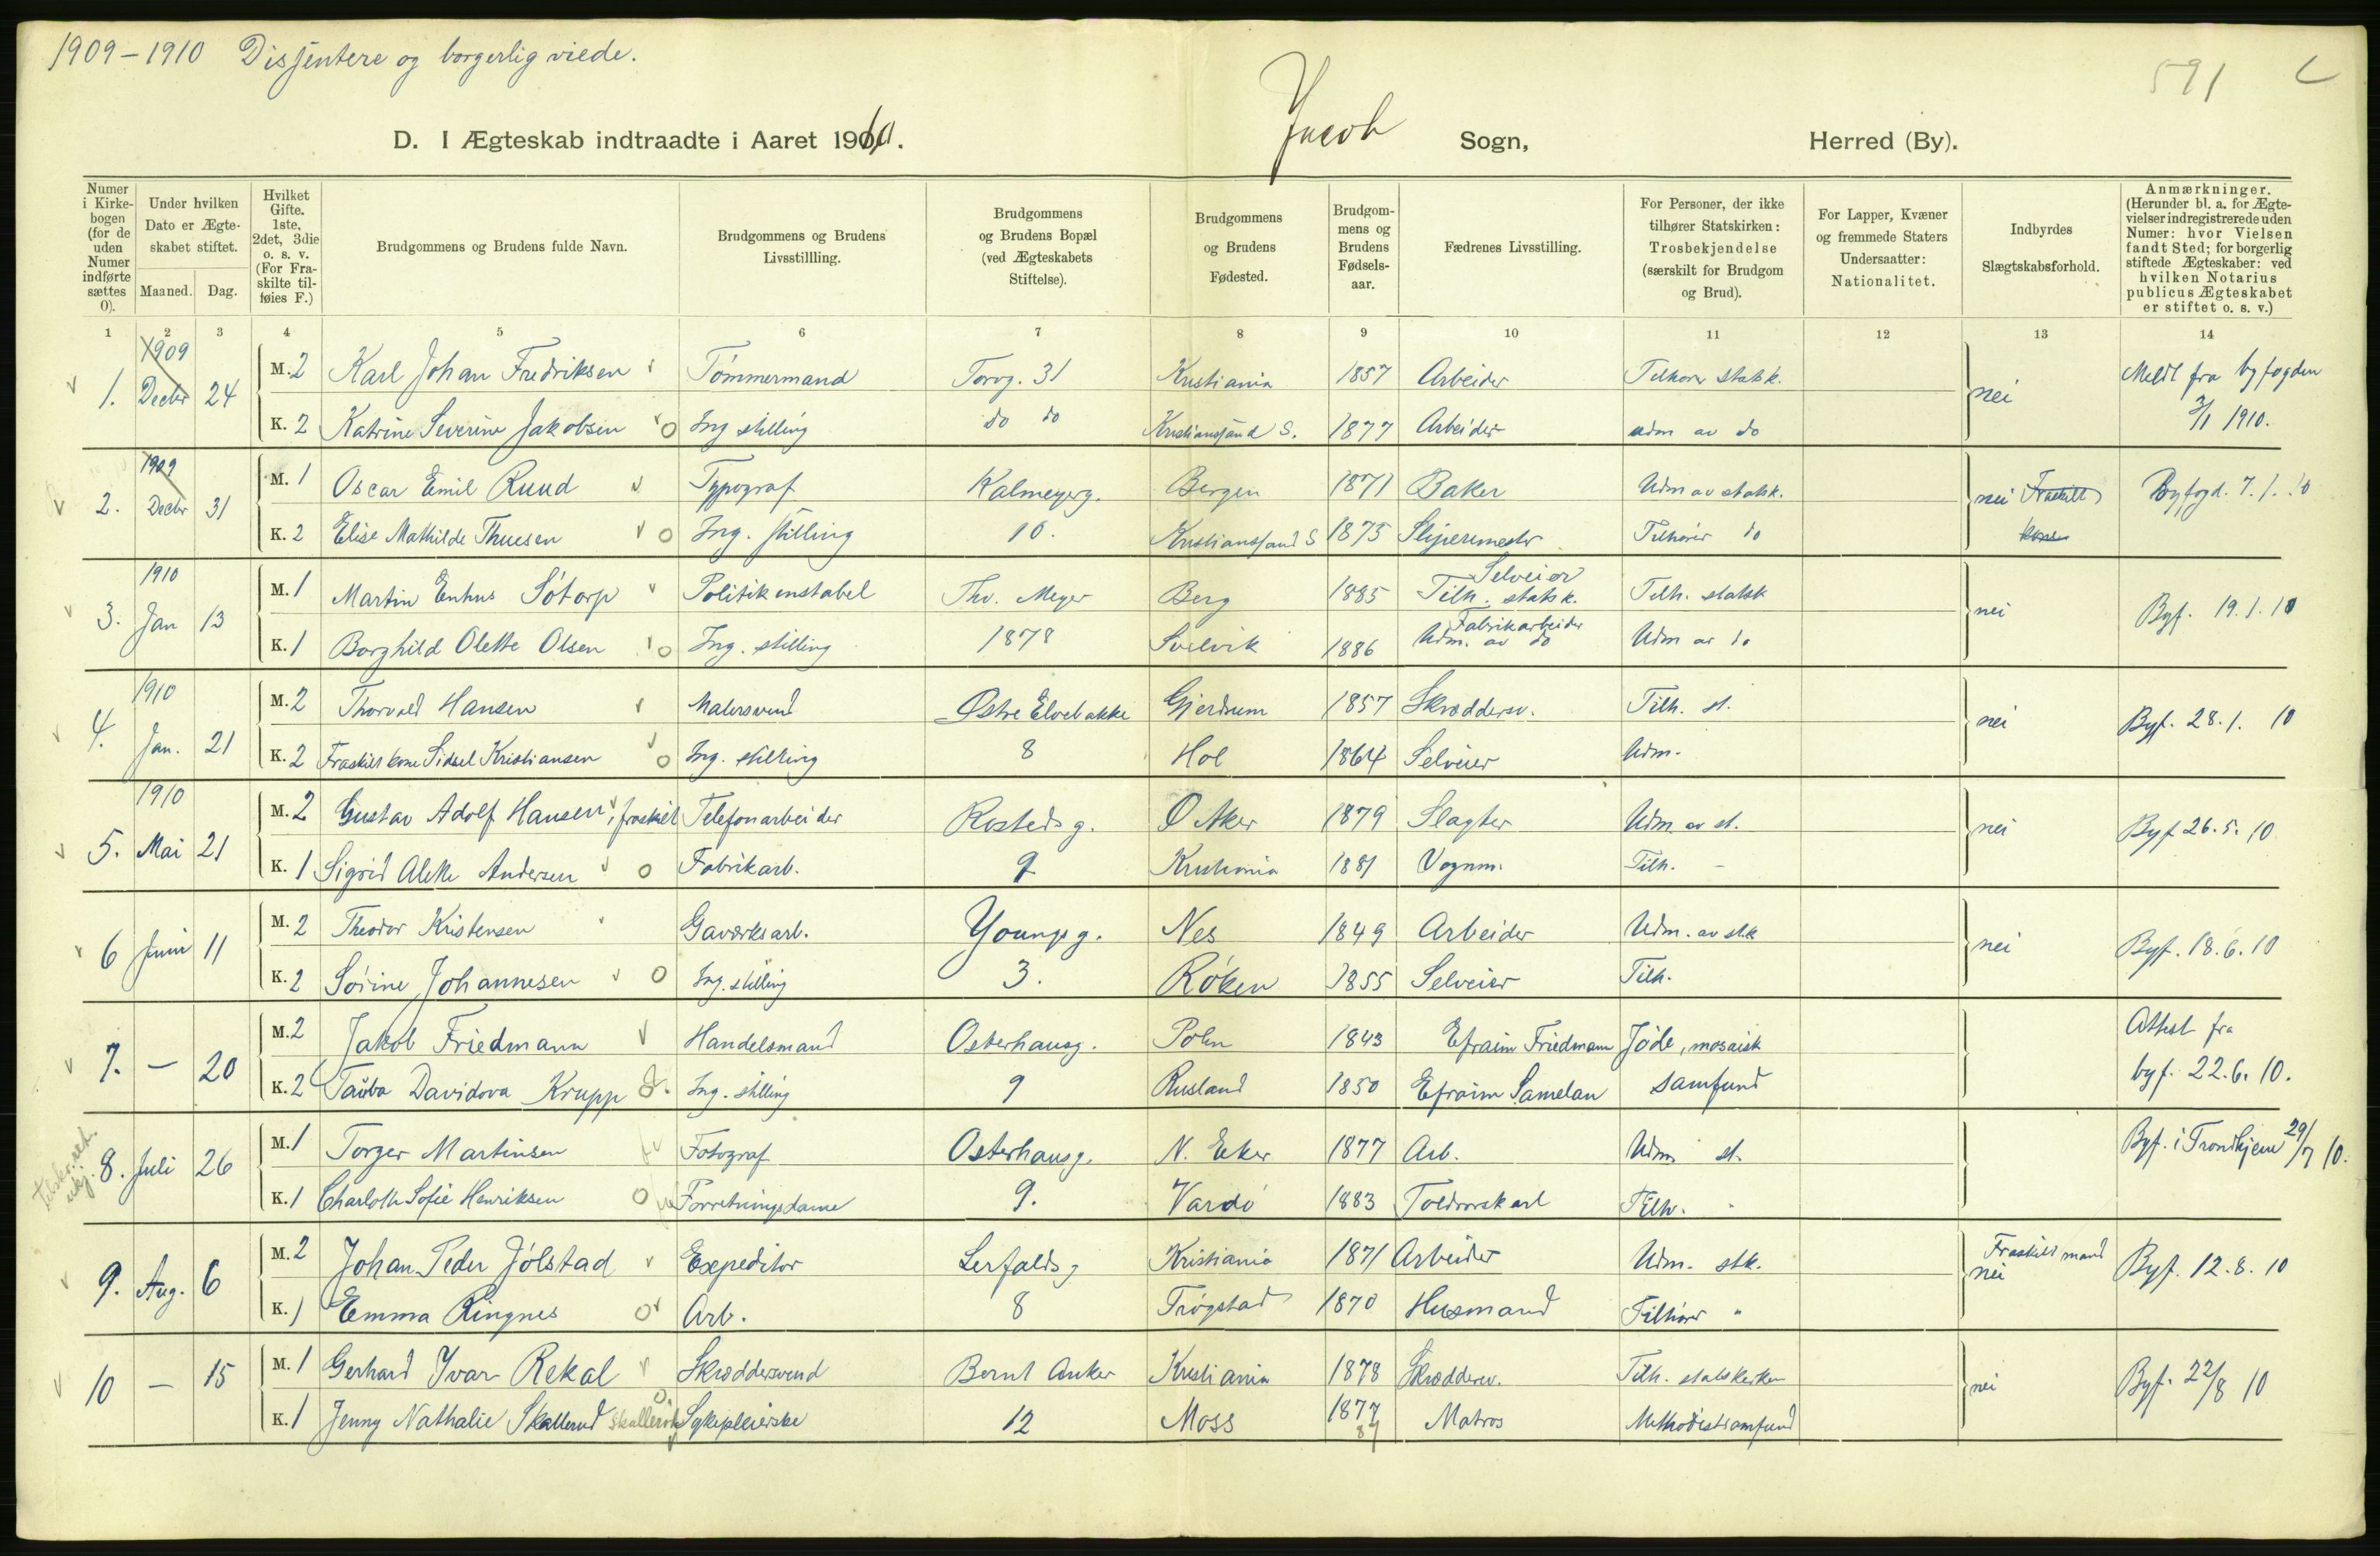 1909-1910 Dissentere og borgerlig viede.
591
D. I Ægteskab indtraadte i Aaret 1910. Jacob Sogn, Herred (By).
Numer i Kirkebogen (for de uden Numer indførte sættes 0).
Under hvilken Dato er Ægteskabet stiftet.
Maaned. Dag.
Hvilket Gifte. 1ste, 2det, 3die o. s. v. (For Fraskilte tilføies F.)
Brudgommens og Brudens fulde Navn.
Brudgommens og Brudens Livsstillling.
Brudgommens og Brudens Bopæl (ved Ægteskabets Stiftelse).
Brudgommens og Brudens Fødested.
Brudgommens og Brudens Fødselsaar.
Fædrenes Livsstilling.
For Personer, der ikke tilhører Statskirken: Trosbekjendelse (særskilt for Brudgom og Brud).
For Lapper, Kvæner og fremmede Staters Undersaatter: Nationalitet.
Indbyrdes Slægtskabsforhold.
Anmærkninger. (Herunder bl. a. for Ægtevielser indregistrerede uden Numer: hvor Vielsen fandt Sted; for borgerlig stiftede Ægteskaber: ved hvilken Notarius publicus Ægteskabet er stiftet o. s. v.)
1 2 3 4 5 6 7 8 9 10 11 12 13 14
1909
1. Decbr 24 M. 2 Karl Johan Fredriksen Tømmermand Torvg. 31 Kristiania 1857 Arbeider Tilhører statsk. nei Meldt fra byfogden
K. 2 Katrine Severine Jakobsen o Ing stilling do do Kristianssand S. 1877 Arbeider udm av do 3/1 1910.
1909
2. Decbr 31 M. 1 Oscar Emil Ruud Typograf Kalmeyerg. Bergen 1871 Baker Udm av statsk. nei Fraskilt Byfogd. 7.1.10
K. 2 Elise Mathilde Thuesen o Ing. stilling 10. Kristianssand S 1875 Sliperemester Tilhører do kone
1910
3. Jan 13 M. 1 Martin Enhus Søtorp Politikonstabel Thv. Meyer Berg 1885 Selveier Tilh. statsk. Tilh. statsk nei Byf. 19.1.10
K. 1 Borghild Olette Olsen o Ing. stilling 1878 Svelvik 1886 Fabrikarbeider Udm. av do Udm av do
1910
4. Jan. 21 M. 2 Thorvald Hansen Malersvend Østre Elvebakke Gjerdrum 1857 Skræddersv. Tilh. st. nei Byf. 28.1. 10
K. 2 Fraskilt kone Sidsel Kristiansen o Ing. stilling 8 Hol 1864 Selveier Udm.
1910
5. Mai 21 M. 2 Gustav Adolf Hansen, fraskilt Telefonarbeider Rosteds g. Ø Aker 1879 Slagter Udm av st. nei Byf 26.5.10
K. 1 Sigrid Alette Andersen o Fabrikarb. 9 Kristiania 1881 Vognm. Tilh. -
6 Juni 11 M. 2 Theodor Kristensen Gaværksarb. Youngs g. Nes 1849 Arbeider Udm. av stk nei Byf. 18.6.10
K. 2 Sørine Johannesen o Ing. stilling 3. Røken 1855 Selveier Tilh.
7. - 20 M. 2 Jakob Friedmann Handelsmand Osterhausg. Polen 1843 Efraim Friedmann Jøde, mosaisk Attest fra
K. 2 Tauba Davidova Krupp Ing. stilling 9 Rusland 1850 Efraim Samelan samfund byf. 22.6.10.
8. Juli 26 M. 1 Torger Martinsen Fotograf Osterhausg. N. Eker 1877 Arb. Udm st. Byf. i Trondhjem 29/7 10.
K. 1 Charlotte Sofie Henriksen o Forretningsdame 9. Vardø 1883 Toldrorskarl Tilh. "
9. Aug. 6 M. 2 Johan Peder Jølstad Expeditør Lerfaldsg Kristiania 1871 Arbeider Udm. stk. Fraskilt mand nei Byf. 12.8.10
K. 1 Emma Ringnes o Arb. 8 Trøgstad 1870 Husmand Tilhører "
10 - 15 M. 1 Gerhard Yvar Rekal Skræddersvend Bernt Anker Kristiania 1878 Skræddersv. Tilh. statskirken nei Byf. 22/8 10
K. 1 Jenny Nathalie Skallerud Sykepleierske 12 Moss 1877 Matros Methodistsamfund